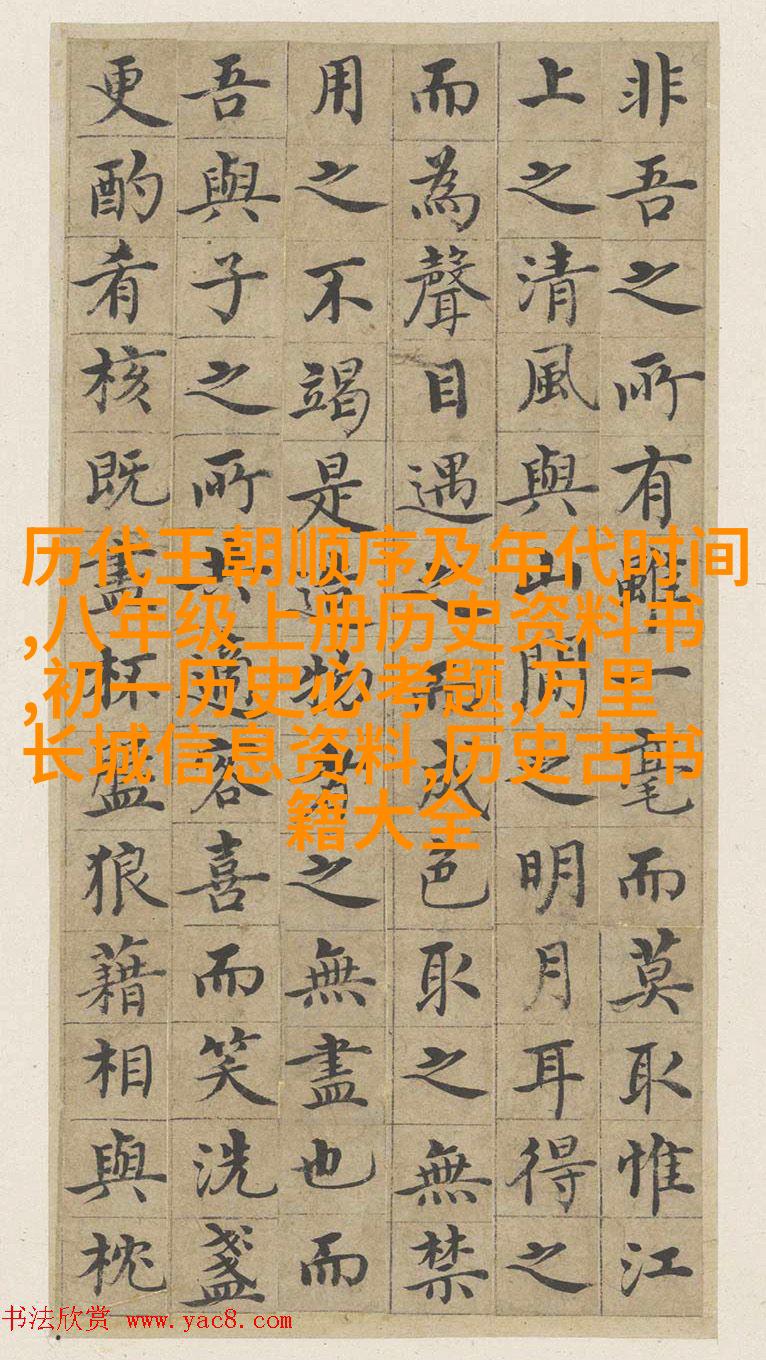 非吾之所有雖一毫而莫取惟江
上之清風與山間之明月耳得之
而為聲目遇之而成色取之無禁
用之不竭是造物者之無盡也而
吾與子之所共適客喜而笑洗盞
更酌肴核既盡杯盤狼藉相與枕
历代王朝顺序及年代时间
,八年级上册历史资料书
,初一历史必考题,万里
长城信息资料,历史古书
籍大全
书法欣赏 www.yac8.com